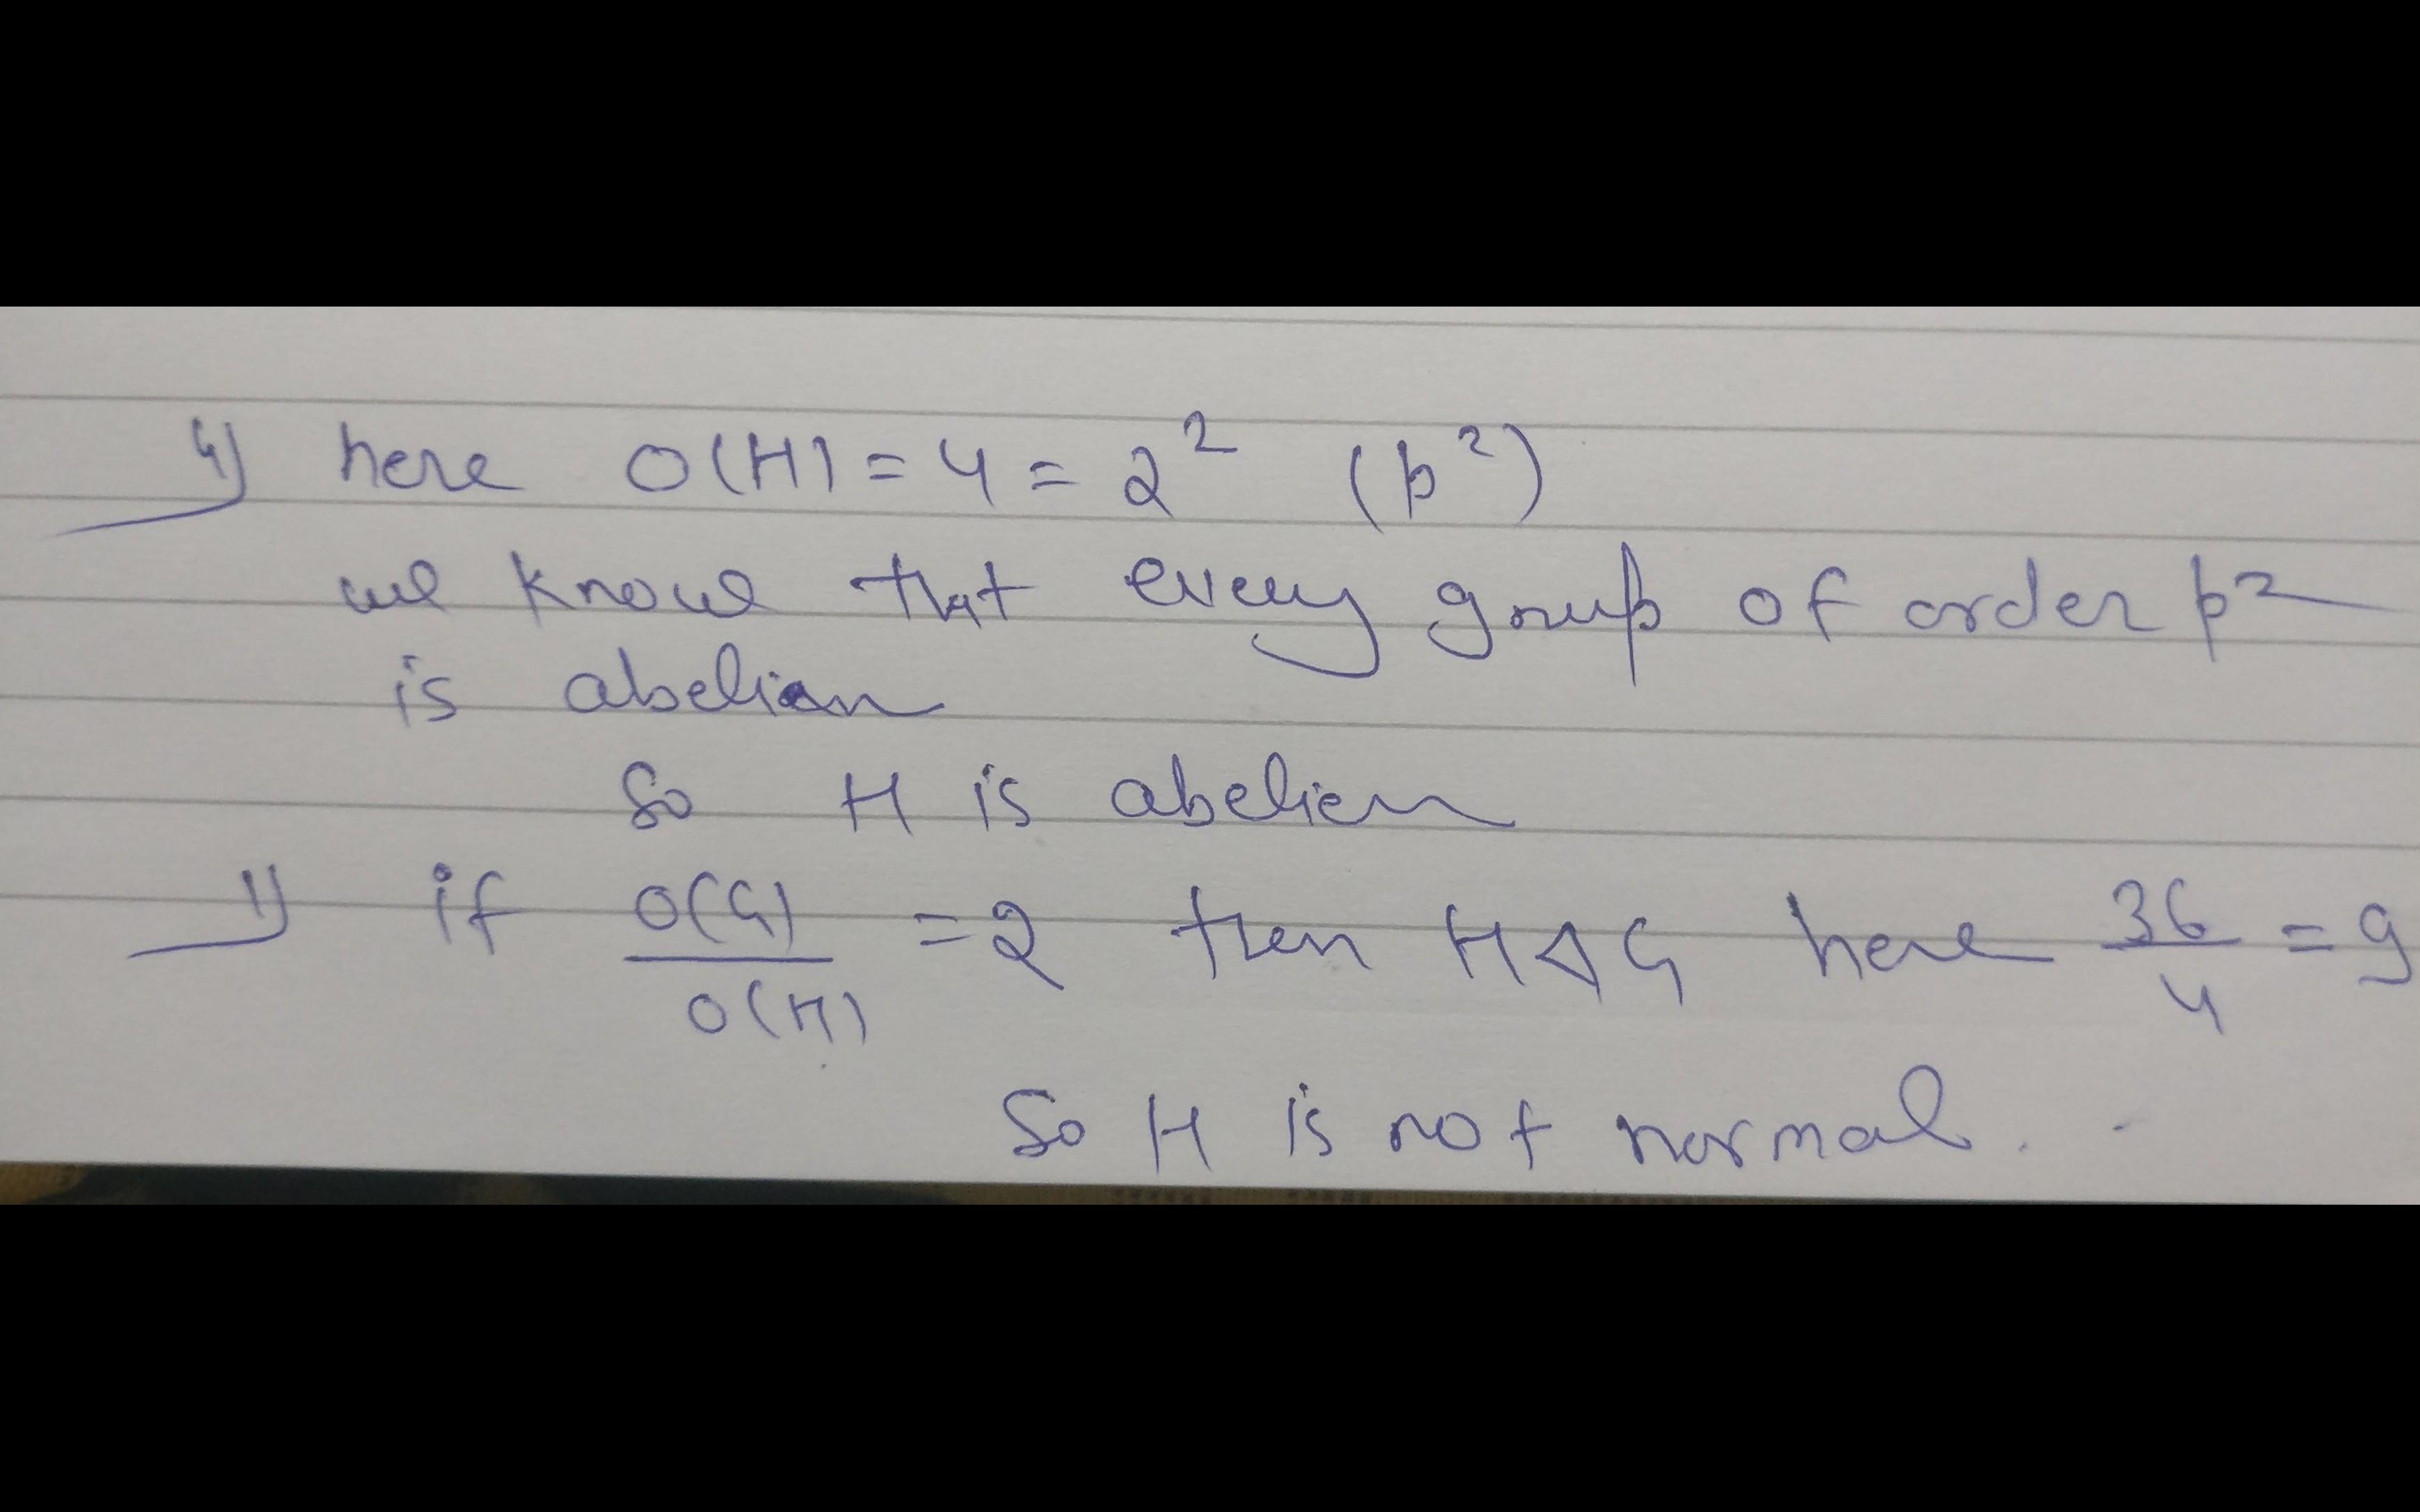 4) here O(H) = 4 = 2² (p²)
we know that every group of order p²
is abelian
So H is abelian
1) if O(G)/O(H) = 2 then H⊲G here 36/4 = 9
So H is not normal.